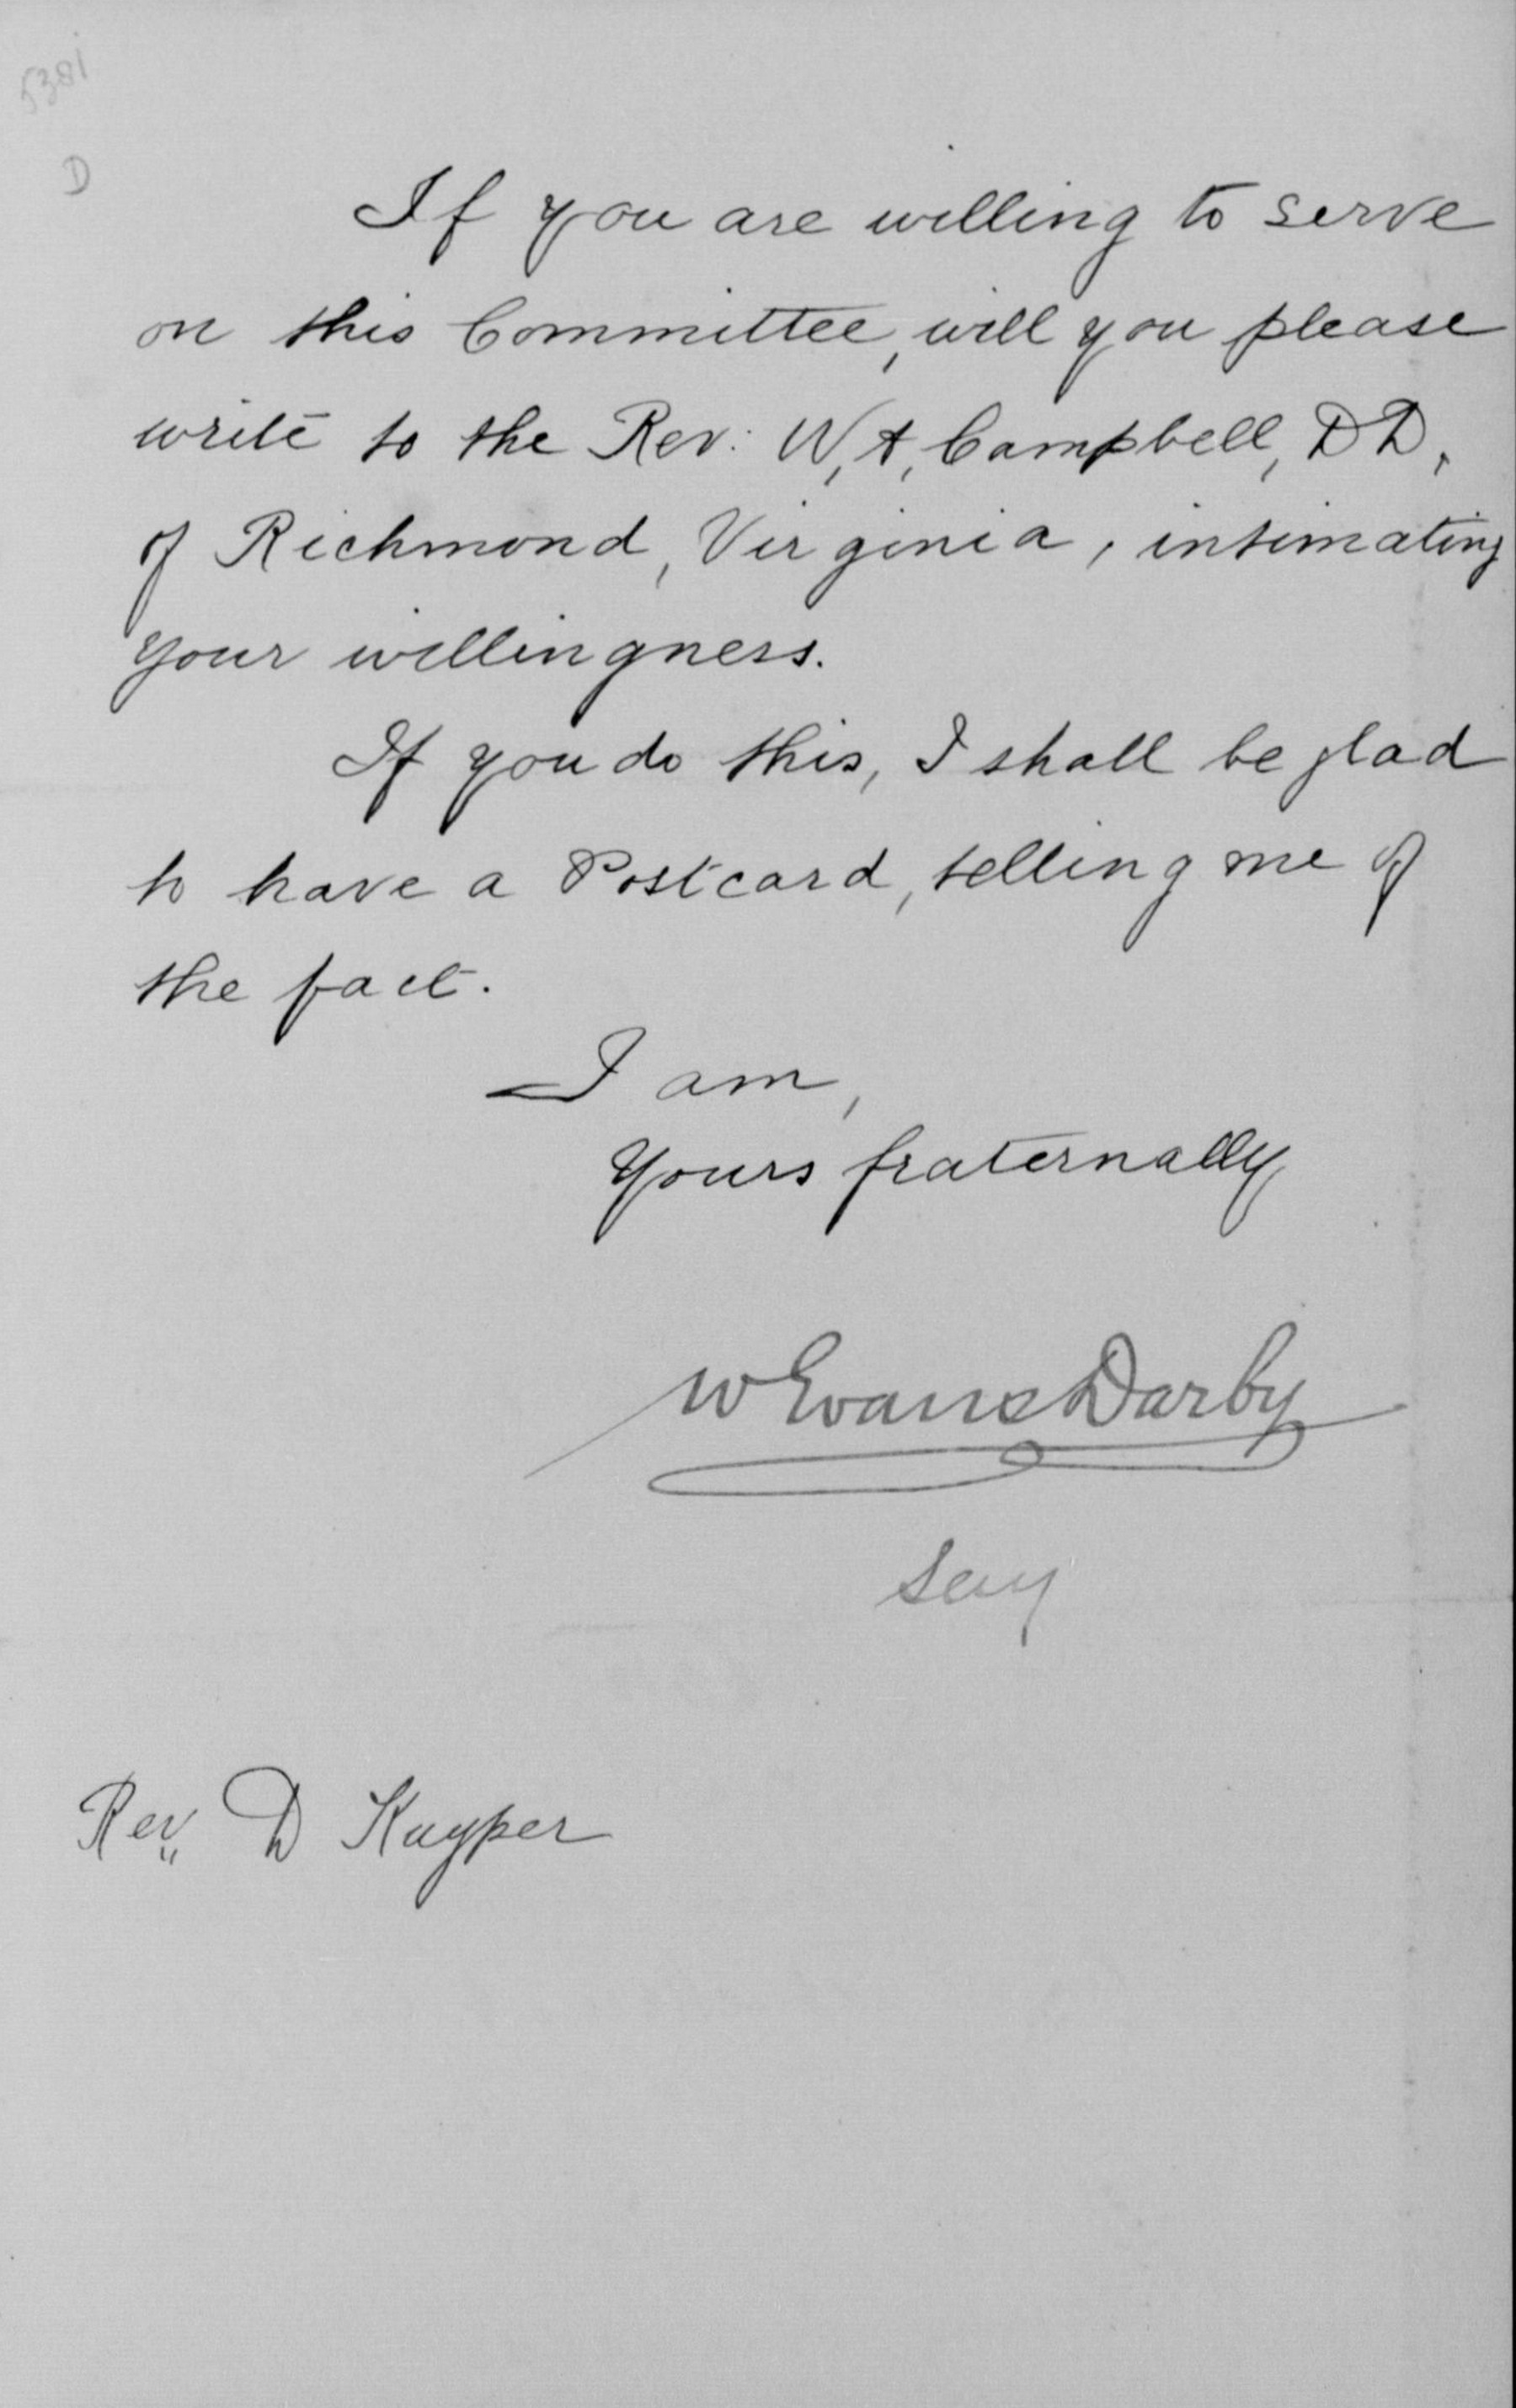 5381
D
If you are willing to serve
on this Committee, will you please
write to the Rev: W, A, Campbell, D D,
of Richmond, Virginia, intimating
your willingness.
If you do this, I shall be glad
to have a Postcard, telling me of
the fact.
I am,
Yours fraternally
W Evans Darby
Secy
Rev. D Kuyper